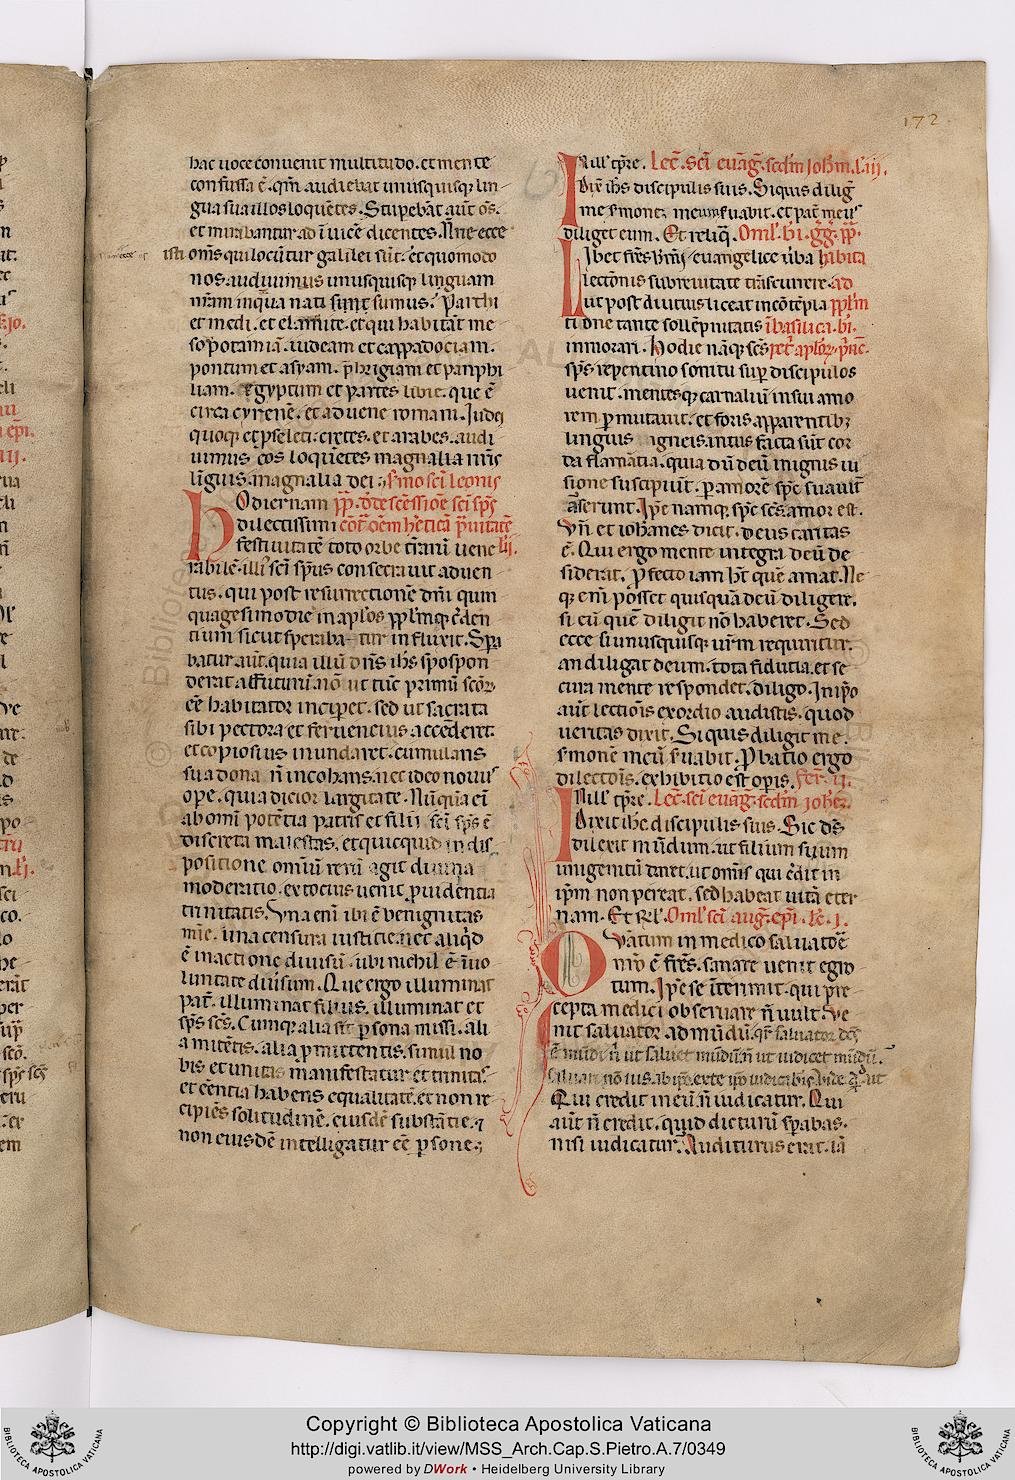 172
hac uoce conuenit multitudo. et mente
confussa ē. qm̄ audiebat unusquisq; lin-
gua sua illos loquētes. Stupebāt aūt oēs.
et mirabantur ad īuicē dicentes. Nōne ecce
isti omīs qui locūtur galilei sūt. et quomodo
nos audiuimus unusquisque linguam
nr̄am in qua nati sumus. Parthi
et medi. et elamite. et qui habitāt me
sopotamiā. iudeam et cappadociam.
pontum et asyam. phrigiam et panphi
liam. egyptum et partes libie. que ē
circa cyrenē. et aduene romani. Iudei
quoq; et pseleti. cretes. et arabes. audi
uimus eos loquētes magnalia nr̄is
liguis. magnalia dei. sermo scī leonis
Hodiernam pp̄.
dilectissimi
festiuitatē toto orbe trarū uene
rabilē. illi scī sp̄us consecrauit aduen
tus. qui post resurrectionē dnī quin
quagesimo die in apl̄os pplm̄q; crēden
tium sicut speraba-tur influxit. Spera
batur aūt. quia illū dn̄s ih̄s spospon
derat affuturū. nō ut tūc primū scōr
eē habitator inciperet. sed ut sacrata
sibi pectora et feruencius accēderet.
et copiosius inundaret. cumulans
sua dona. n̄ incohans. nec ideo nouus
ope. quia dicior largitate. Nūquā eī
ab omī potētia patris et filii scī sp̄s ē
discreta maiestas. et quicquid in dis-
positione omīū rerū agit diuina
moderatio. ex tocius uenit puidentia
trinitatis. Vna enī ibi ē benignitas
mīe. una censura iusticie. nec aliqd
ē in actione diuisū. ubi nichil ē ī uo
luntate diuisum. Que ergo illuminat
pat̄. illuminat filius. illuminat et
sp̄s scs̄. Cumq; alia sit psona missi. ali
a mitētis. alia pmittentis. simul no
bis et unitas manifestatur et trinitas.
et eēntia habens equalitatē. et non re
cipiēs solitudinē. eiusdē substātie. et
non eiusdē intelligatur eē psone;
In ill' tp̄re. Lec̄. scī euāg̅. secd̄m ioh̄m. l' iij.
Dix̄ ih̄s discipulis suis. Si quis dilig̅
me sermonē meum seruabit. et pat̄ meus
diliget eum. Et reliq̄. Oml' bī. gg̅. pp̄.
Libet fr̄es euangelice uba habita
lectionis sub breuitate trāscurrere. ad
ut post diutius liceat incōtēpla pplm̄
tione tante sollēpnitatis ī basilica. bī.
inmorari. Hodie nāq; scs̄ petri aplōr.
sp̄s repentino sonitu sup discipulos
uenit. mentesq; carnalium in sui amo
rem pmutauit. et foris apparentib;
linguis igneis. intus facta sūt cor
da flamātia. quia dū deū in ignis ui
sione susceperūt. p amorē
arserunt. Ipse namq; sp̄s scs̄. amor est.
Vn̄. et iohanes dicit. deus caritas
ē. Qui ergo mente integra deū de
siderat. pfecto iam ht̄ quē amat. Ne
q; enī posset quisquā deū diligere.
si eū quē diligit nō haberet. Sed
ecce si unusquisq; ur̄m requiritur.
an diligat deum. tota fiducia. et se
cura mente respondet. diligo. In ipō
aūt lectiōis exordio audistis. quod
ueritas dixit. Si quis diligit me.
sermonē meū seruabit. Pbatio ergo
dilectiōis. exhibitio est opis. Fer̄. ii.
In ill' tp̄re. Lec̄. scī euāg̅. secd̄m ioh̄.
Dixit ih̄s discipulis suis. Sic ds̄
dilexit mūdum. ut filium suum
unigenitū daret. ut omīs qui cr̄edit in
ipm̄ non pereat. sed habeat uitā eter
nam. Et Rl'. Oml' scī aug̅. epī. le. i.
Quātum in medico saluatōe
nr̄o ē fr̄es. sanare uenit egro
tum. Ipse se īterimit. qui pre-
cepta medici obseruare n̄ uult. Ve
nit saluator ad mūdū. qr̄ saluator
ē mūdi. n̄ ut saluet mūdū. n̄ ut iudicet mūdū.
Qui credit in eū. n̄ iudicatur. Qui
aūt n̄ credit. quid dicturū sperabas.
nisi iudicatur. Auditurus erat. iā
Copyright © Biblioteca Apostolica Vaticana
http://digi.vatlib.it/view/MSS_Arch.Cap.S.Pietro.A.7/0349
powered by DWork • Heidelberg University Library
BIBLIOTECA APOSTOLICA VATICANA
BIBLIOTECA APOSTOLICA VATICANA